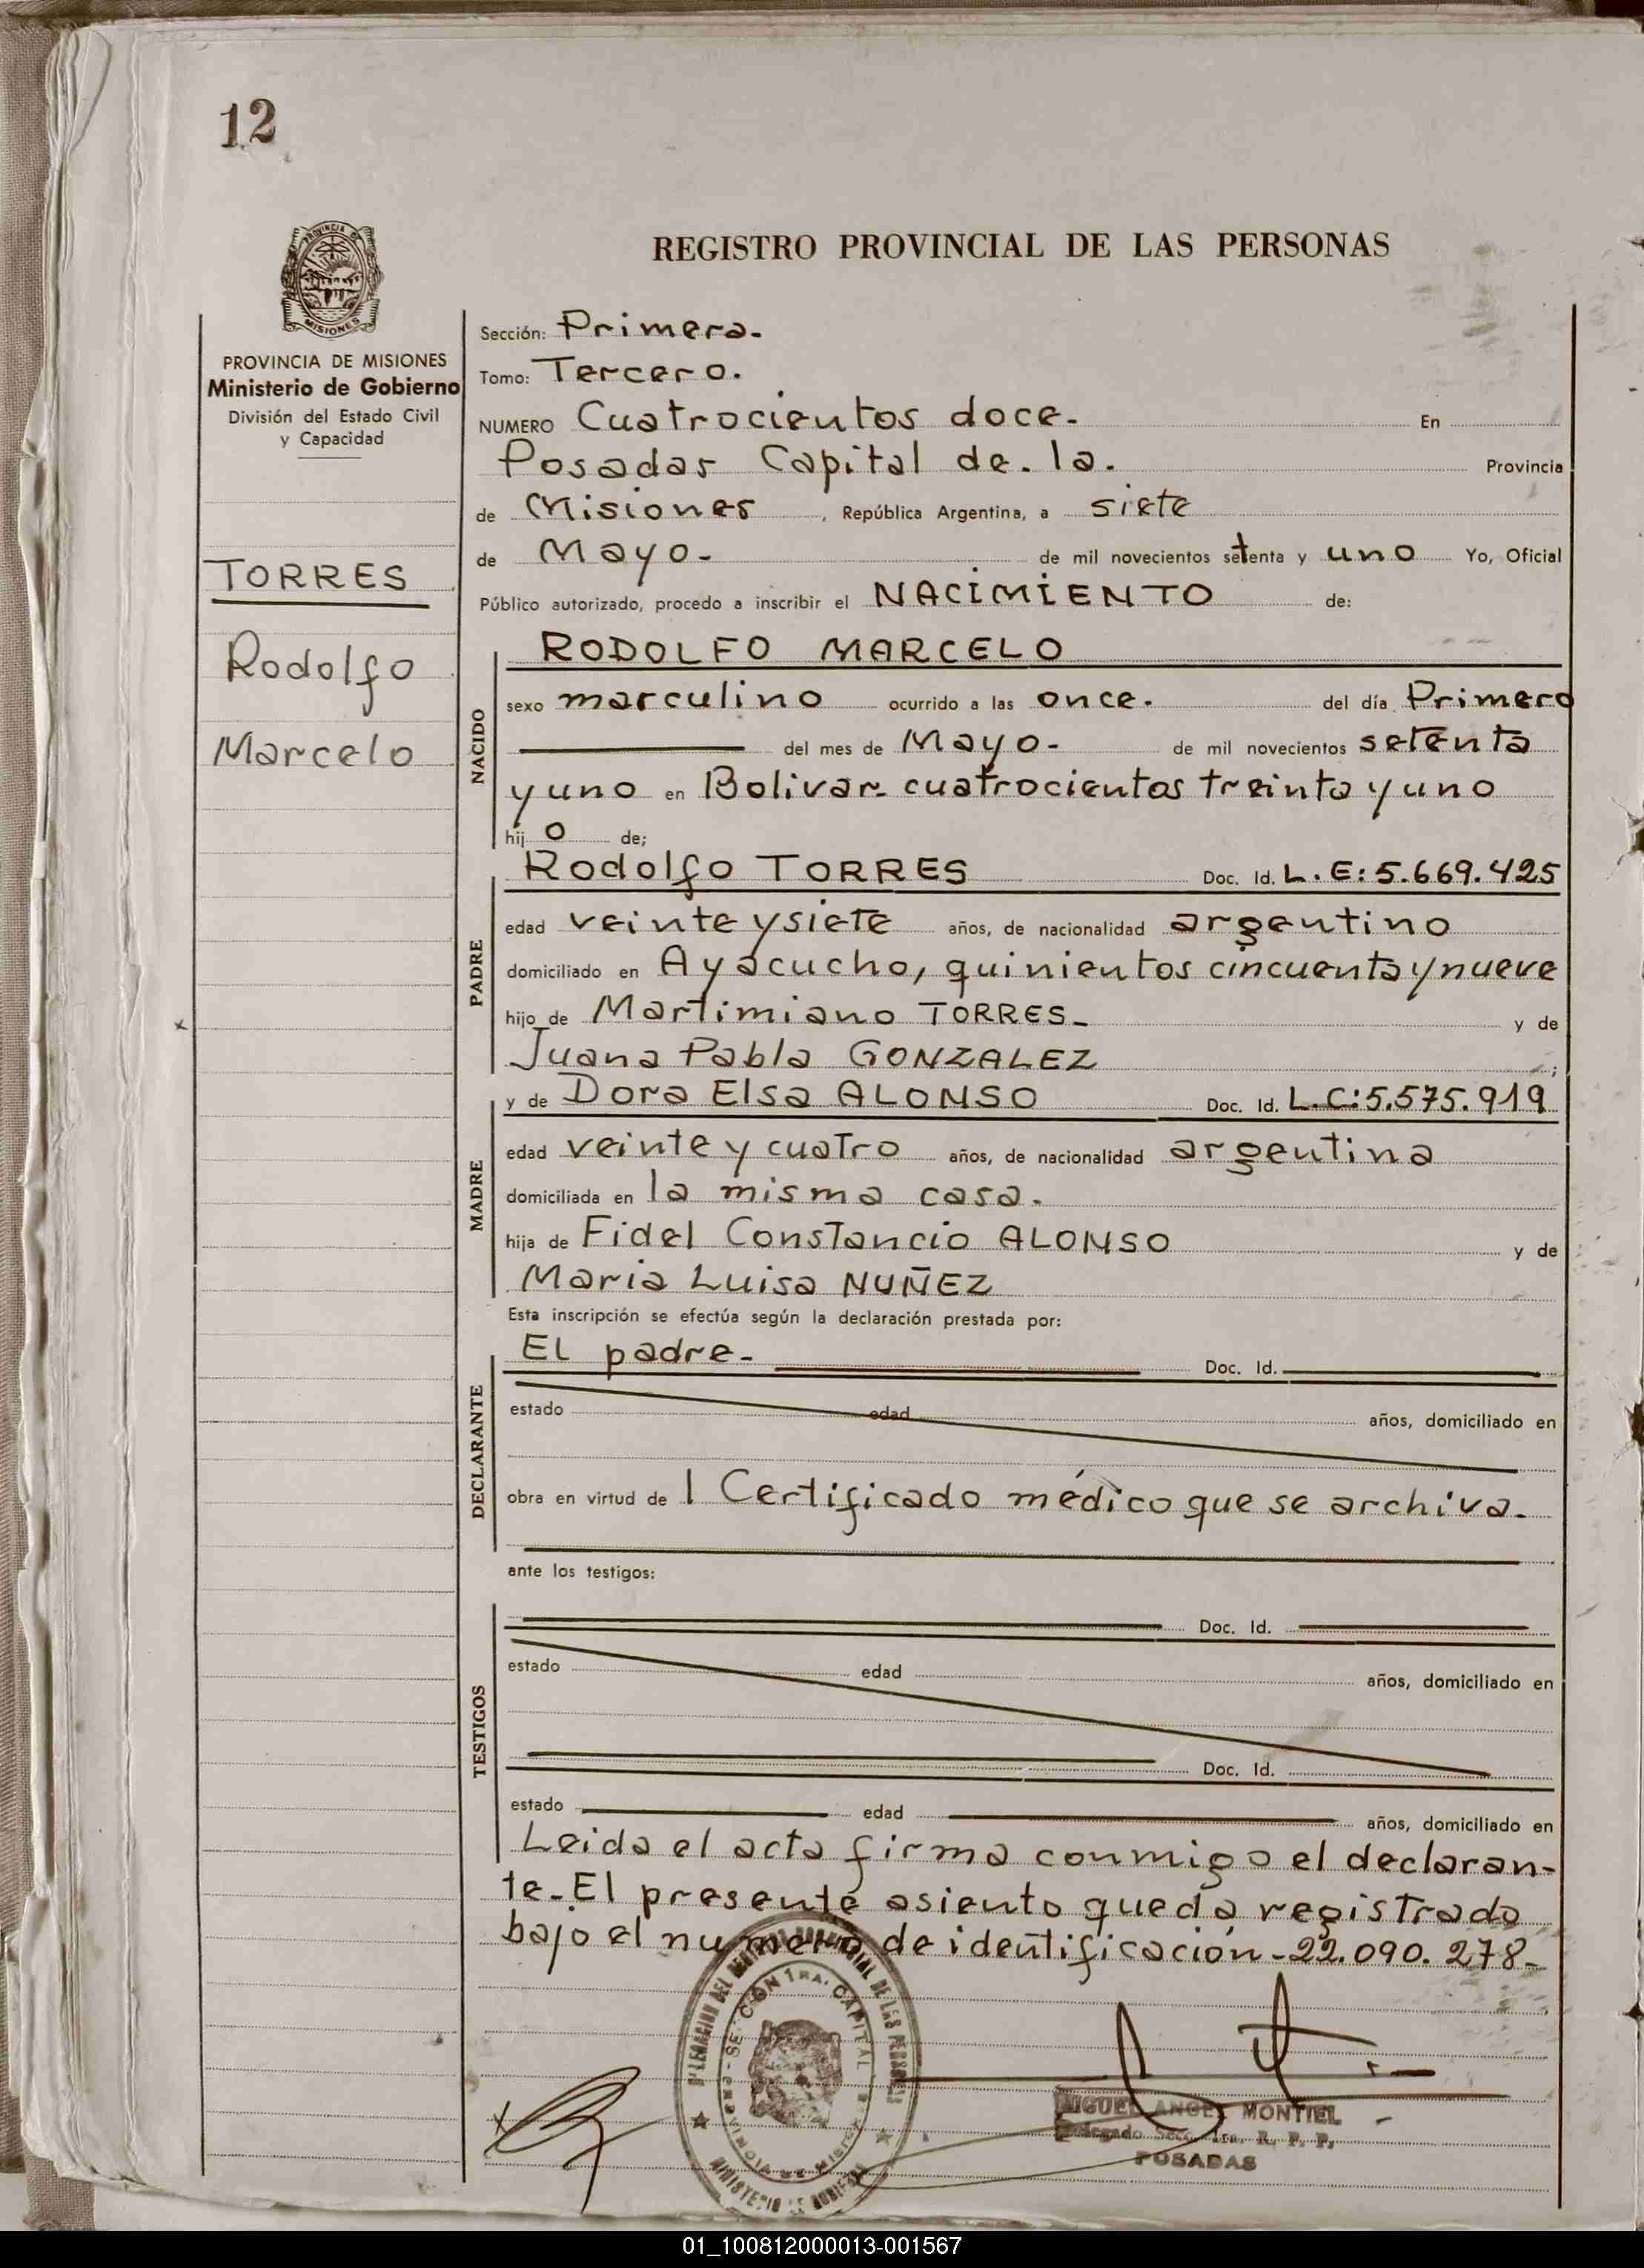 12
PROVINCIA DE
MISIONES
REGISTRO PROVINCIAL DE LAS PERSONAS
PROVINCIA DE MISIONES
Ministerio de Gobierno
División del Estado Civil
y Capacidad
TORRES
Rodolfo
Marcelo
Sección: Primera.
Tomo: Tercero.
NUMERO Cuatrocientos doce. En
Posadas Capital de. la. Provincia
de Misiones, República Argentina, a siete
de Mayo. de mil novecientos setenta y uno Yo, Oficial
Público autorizado, procedo a inscribir el NACIMIENTO de:
NACIDO
RODOLFO MARCELO
sexo masculino ocurrido a las once. del día Primero
del mes de Mayo. de mil novecientos setenta
y uno en Bolivar. cuatrocientos treinta y uno
hijo de;
PADRE
Rodolfo TORRES Doc. Id. L.E: 5.669.425
edad veinte y siete años, de nacionalidad argentino
domiciliado en Ayacucho, quinientos cincuenta y nueve
hijo de Martimiano TORRES. y de
Juana Pabla GONZALEZ ;
MADRE
y de Dora Elsa ALONSO Doc. Id. L.C: 5.575.919
edad veinte y cuatro años, de nacionalidad argentina
domiciliada en la misma casa.
hija de Fidel Constancio ALONSO y de
Maria Luisa NUÑEZ
Esta inscripción se efectúa según la declaración prestada por:
DECLARANTE
El padre. Doc. Id.
estado edad años, domiciliado en
obra en virtud de 1 Certificado médico que se archiva.
ante los testigos:
TESTIGOS
Doc. Id.
estado edad años, domiciliado en
Doc. Id.
estado edad años, domiciliado en
Leida el acta firma conmigo el declaran-
te. El presente asiento queda registrado
bajo el numero de identificación - 22.090.278-
SECCION 1RA. CAPITAL
MINISTERIO DE GOBIERNO
MIGUEL ANGEL MONTIEL
Delegado Secc. 1ra. R. P. P.
POSADAS
01_100812000013-001567